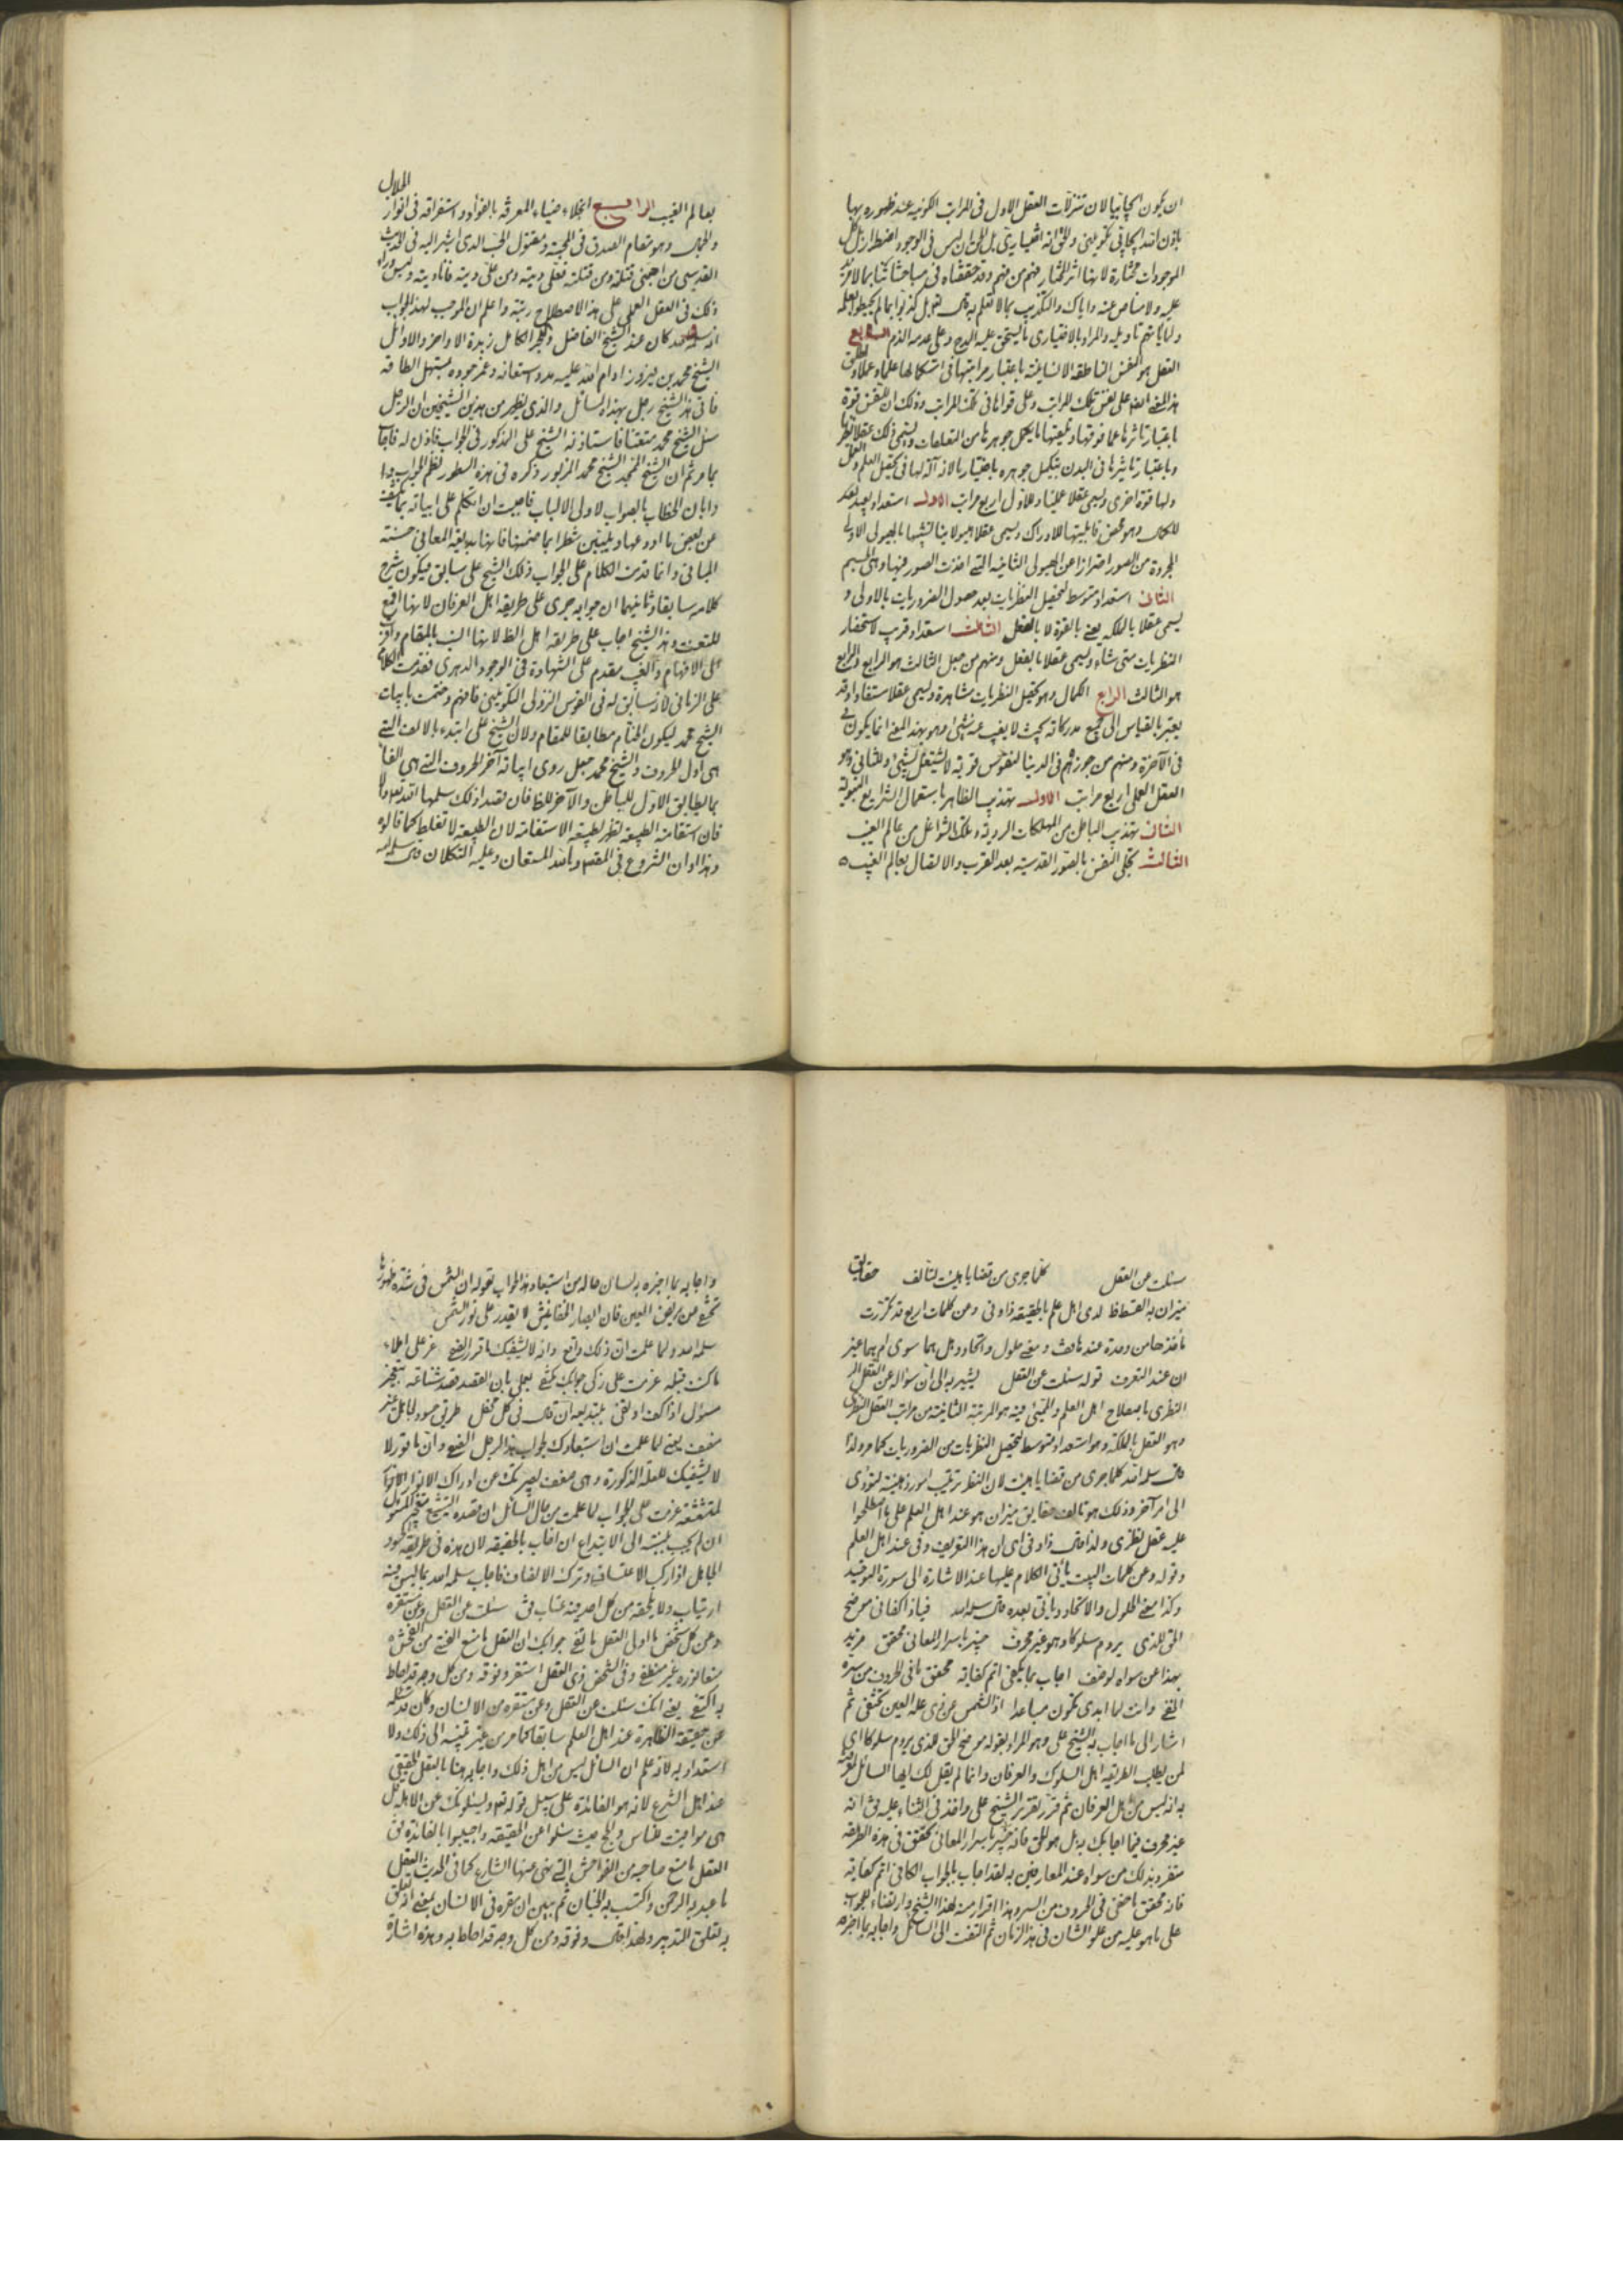 ان يكون ايجابيا لان تنزلات العقل الاول فى المراتب الكونيه عند ظهوره بها
باذن الله ايجابى تكوينى والحق انه اختيارى بل الحق ان ليس فى الوجود اضطرار بل كل
الموجودات مختارة لانها اثر المختار فهم من فهم وقد حققناه فى مباحثاتنا بما لا مزيد
عليه ولا مناص عنه واياك والتكذيب بما لا تعلم به قال تعالى بل كذبوا بما لم يحيطوا بعلمه
ولما ياتهم تاويله والمراد بالاختيارى ما يستحق عليه المدح وعلى عدمه الذم السابع
العقل هو النفس الناطقه الانسانية باعتبار مراتبها فى استكمالها علما وعملا ويطلق
هذا المعنى ايضا على نفس تلك المراتب وعلى قواها فى تلك المراتب وذلك ان للنفس قوة
باعتبار تاثرها عما فوقها وتلقيها ما يكمل جوهرها من التعقلات ويسمى ذلك عقلا نظريا
وباعتبار تاثيرها فى البدن بتكميل جوهره باختيار لانه آلة لها فى تحصيل العلم والعمل
ولها قوة اخرى ويسمى عقلا عمليا وللاول اربع مراتب الاولى استعداد بعيد
للكمال وهو محض قابليتها للادراك ويسمى عقلا هيولانيا لتشبهها بالهيولى الاولى
المجردة من الصور احترازا عن الهيولى الثانية التى اخذت الصور فيها وهى الجسم
الثانى استعداد متوسط لتحصيل النظريات بعد حصول الضروريات بالاولى و
يسمى عقلا بالملكه يعنى بالقوة لا بالفعل الثالث استعداد قريب لاستحضار
النظريات متى شاء ويسمى عقلا بالفعل ومنهم من جعل الثالث هو الرابع والرابع
هو الثالث الرابع الكمال وهو تحصيل النظريات مشاهدة ويسمى عقلا مستفادا وقد
يعتبر بالقياس الى جميع مدركاته بحيث لا يغيب عنه شىء وهو بهذا المعنى انما يكون
فى الآخرة ومنهم من جوزه فى الدنيا لنفوس قوية لا يشغلها شىء وللثانى وهو
العقل العملى اربع مراتب الاولى تهذيب الظاهر باستعمال الشرايع النبوية
الثانى تهذيب الباطن من الملكات الردية وفك الشواغل من عالم الغيب
الثالث تحلى النفس بالصور القدسية بعد القرب والاتصال بعالم الغيب
الجلال
بعالم الغيب الرابع انجلاء ضياء المعرفه بالفؤاد واستغراقه فى انوار
والجمال وهو مقام الصدق فى المحبة ومقتول الحب الذى اشير اليه فى الحديث
القدسى من احبنى قتلته ومن قتلته فعلى ديته ومن على ديته فانا ديته وليس وراء
ذلك فى العقل العملى على هذا الاصطلاح رتبة واعلم ان الموجب لهذا الجواب
انه كان عند الشيخ الفاضل والحبر الكامل زبدة الاواخر والاوائل
الشيخ محمد بن فيروز ادام الله عليه مدد استعانه وغمر جوده
فاتى هذا الشيخ رجل بهذا السائل والذى يظهر من هذين الشيخين ان الرجل
سئل الشيخ محمد متعنتا فاستاذنه الشيخ على المذكور فى الجواب فاذن له فاجاب
بما مر ثم ان الشيخ الممجد الشيخ محمد المزبور ذكره فى هذه السطور نظم الجواب
وابان الخطاب بالصواب لاولى الالباب فاحببت ان اتكلم على ابياته
عن بعض ما اودعها ويبين شطرا مما ضمنها فانها بديعة المعانى حسنة
المبانى وانما قدمت الكلام على الجواب ذلك الشيخ على سابق فيكون شرح
كلامه سابقا وثانيهما ان جوابه جرى على طريقه اهل العرفان لانها اقمع
للمتعنت وهذا الشيخ اجاب على طريقه اهل الظاهر لانها انسب بالمقام واقرب
الى الافهام والغيب مقدم على الشهادة فى الوجود الدهرى فقدمت الكلام
على الزمانى لانه سابق له فى القوس النزولى التكوينى فافهم وختمت بابيات
الشيخ محمد ليكون الختام مطابقا للمقام ولان الشيخ على ابتدء بالالف التى
هى اول الحروف والشيخ محمد جعل روى ابياته آخر الحروف التى هى الفا
بما يطابق الاول للباطن والآخر للظاهر فان قصدا ذلك سلمهما الله تعالى والا
فان استقامة الطبيعه تظهر لطبيعة الاستقامة لان الطبيعة لا تغلط كما قالوه
وهذا اوان الشروع فى المقصود وبالله المستعان وعليه التكلان قال سلمه الله
سئلت عن العقل كلما جرى من قضايا هيئت لتألف حقايق
ميزان به القسط اذ لدى اهل علم بالحقيقه ذا وفى وعن كلمات اربع قد تكررت
مأخذها من وحدة عند ما تفت ومعنى حلول واتحاد وهل هما سوى ام هما غير
ان عند التعرف قوله سئلت عن العقل يشير به الى ان سؤاله عن العقل
النظرى باصطلاح اهل العلم والمجيئ فيه هو المرتبة الثانية من مراتب العقل النظرى
وهو العقل بالملكة وهو استعداد متوسط لتحصيل النظريات من الضروريات كما مر ولذا
قال سلمه الله كلما جرى من قضايا هيئت لان النظر ترتيب امور ذهنية لتؤدى
الى امر آخر وذلك هو تالف حقايق ميزان هو عند اهل العلم على ما اصطلحوا
عليه عقل نظرى ولذا قال ذا وفى اى ان هذا التعريف وفى عند اهل العلم
وقوله وعن كلمات البيت يأتى الكلام عليها عند الاشارة الى سورة التوحيد
وكذا معنى الحلول والاتحاد وياتى بعده قال سلمه الله فهاذا كفانى موضح
الحق للذى يروم سلوكا وهو غير محرف خبير باسرار المعانى محقق مزيد
بهذا عن سواه لوصف اجاب بما يكفى اتم كفاية محقق ما فى الحروف من سره
الخفى وانت لما ابدى تكون مباعدا اذ الشمس عن ذى علة العين تختفى ثم
اشار الى ما اجاب به الشيخ على وهو المراد بقوله موضح الحق للذى يروم سلوكا اى
لمن يطلب الطريقه اهل السلوك والعرفان وانما لم يقل لك ايها السائل لعلمه
به انه ليس من اهل العرفان ثم قرر تقرير الشيخ على واخذ فى الثناء عليه فى انه
غير محرف فيما اجابك به بل هو للحق فانه خبير باسرار المعانى محقق فى هذه الطريقه
منفرد بذلك من سواه عند العارفين به لقد اجاب بالجواب الكافى اتم كفايه
فانه محقق ما خفى فى الحروف من السر وهذا اقرار منه لهذا الشيخ وارتضاء للجواب
على ما هو عليه من علو الشان فى هذا الزمان ثم التفت الى السائل واجابه بما اخبره
واجابه بما اخبره به لسان حاله من استبعاد هذا الجواب بقوله ان الشمس فى شدة ظهورها
تختفى عن مريض العين فان ابصار الخفافيش لا يقدر على نور الشمس
سلمه الله ولما علمت ان ذلك واقع وانه لا يشفيك ما قرر الفتى عن على املاء
ما كنت قبله عزمت على زكى جوابك تكتفى بعلمى بان القصد قصد شناعه بتعجيز
مسؤل اذا كف او نفى بتبديعه ان قال فى كل محفل طريق حسود جاهل غير
منصف يعنى لما علمت ان استبعادك لجواب هذا الرجل الفتى وان ما قرر لا
لا يشفيك للعلة المذكورة وهى ضعف بصيرتك عن ادراك الانوار
عزمت على الجواب لما علمت من حال السائل ان قصده التشنيع بتعجيز المسؤل
ان لم يجب نسبته الى الابتداع ان اجاب بالحقيقه لان هذه فى طريقه الحسود
الجاهل اذا ركب الاعتساف وترك الانصاف فاجاب سلمه الله بما ليس فيه
ارتياب ولا يلحقه من كل احد فيه عتاب قال سئلت عن العقل وعن مستقره
وعن كل شخص يا اولى العقل ما نفى جوابك ان العقل مانع الفتى من الفحش
وفى الشخص ذى العقل استقر وفوقه ومن كل وجه قد احاط
به اكتفى يعنى انك سئلت عن العقل وعن مستقره من الانسان وكان قد سئله
عن حقيقة الظاهرة عند اهل العلم سابقا كما مر من غير تنبيه الى ذلك ولا
استعداد به لانه علم ان السائل ليس من اهل ذلك واجابه هنا بالعقل الحقيقى
عند اهل الشرع لانه هو الفائدة على سبيل قوله تعالى ويسئلونك عن الاهلة قل
هى مواقيت للناس والحج حيث سئلوا عن الحقيقه واجيبوا بالفائدة لان
العقل مانع صاحبه من الفواحش التى نهى عنها الشارع كما فى الحديث العقل
ما عبد به الرحمن واكتسب به الجنان ثم بين ان مقره فى الانسان بمعنى انه تعلق
به تعلق التدبير ولهذا قال وفوقه ومن كل وجه قد احاط به وهذه اشارة